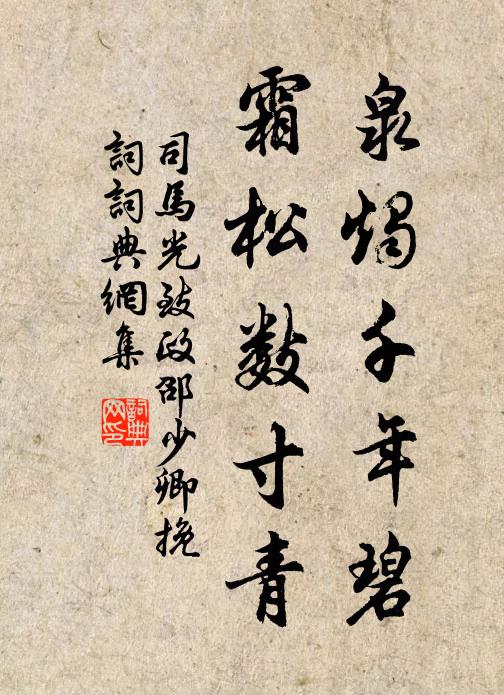 泉燭千年碧
霜松數寸青
司馬光致政邵少卿挽
詞詞典網集
詞典網印